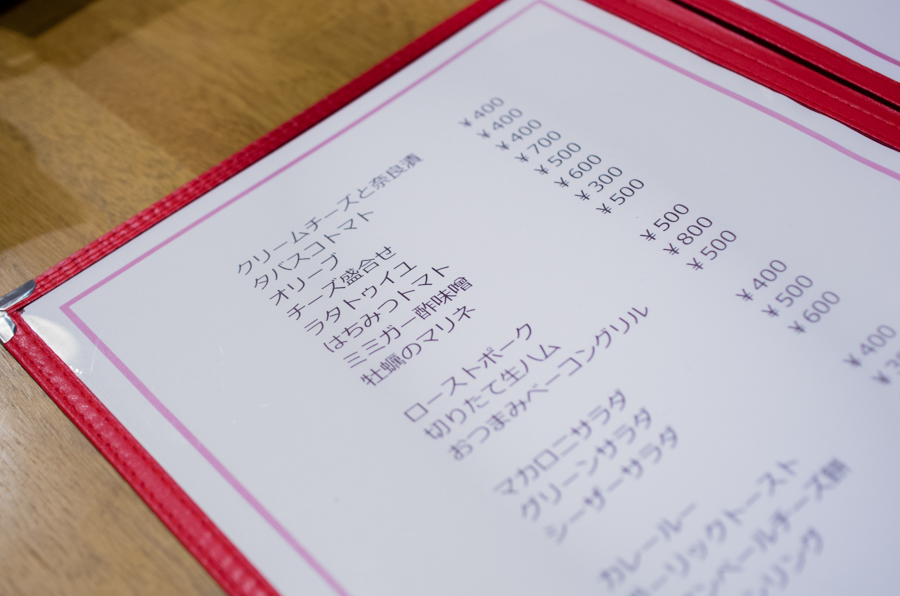 クリームチーズと奈良漬 ¥400
タバスコトマト ¥400
オリーブ ¥400
チーズ盛合せ ¥700
ラタトゥイユ ¥500
はちみつトマト ¥600
ミミガー酢味噌 ¥300
牡蠣のマリネ ¥500
ローストポーク ¥500
切りたて生ハム ¥800
おつまみベーコングリル ¥500
マカロニサラダ ¥400
グリーンサラダ ¥500
シーザーサラダ ¥600
カレールー ¥400
ーリックトースト
ンベールチーズ餅